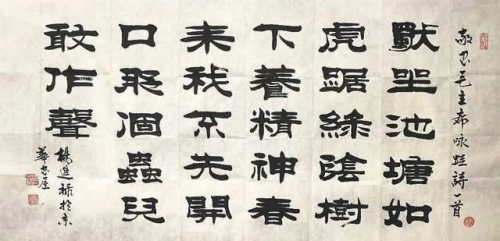 敬書毛主席咏蛙詩一首
獨坐池塘如
虎踞綠陰樹
下養精神春
来我不先開
口那個蟲兒
敢作聲
楊進禄於京
華書屋